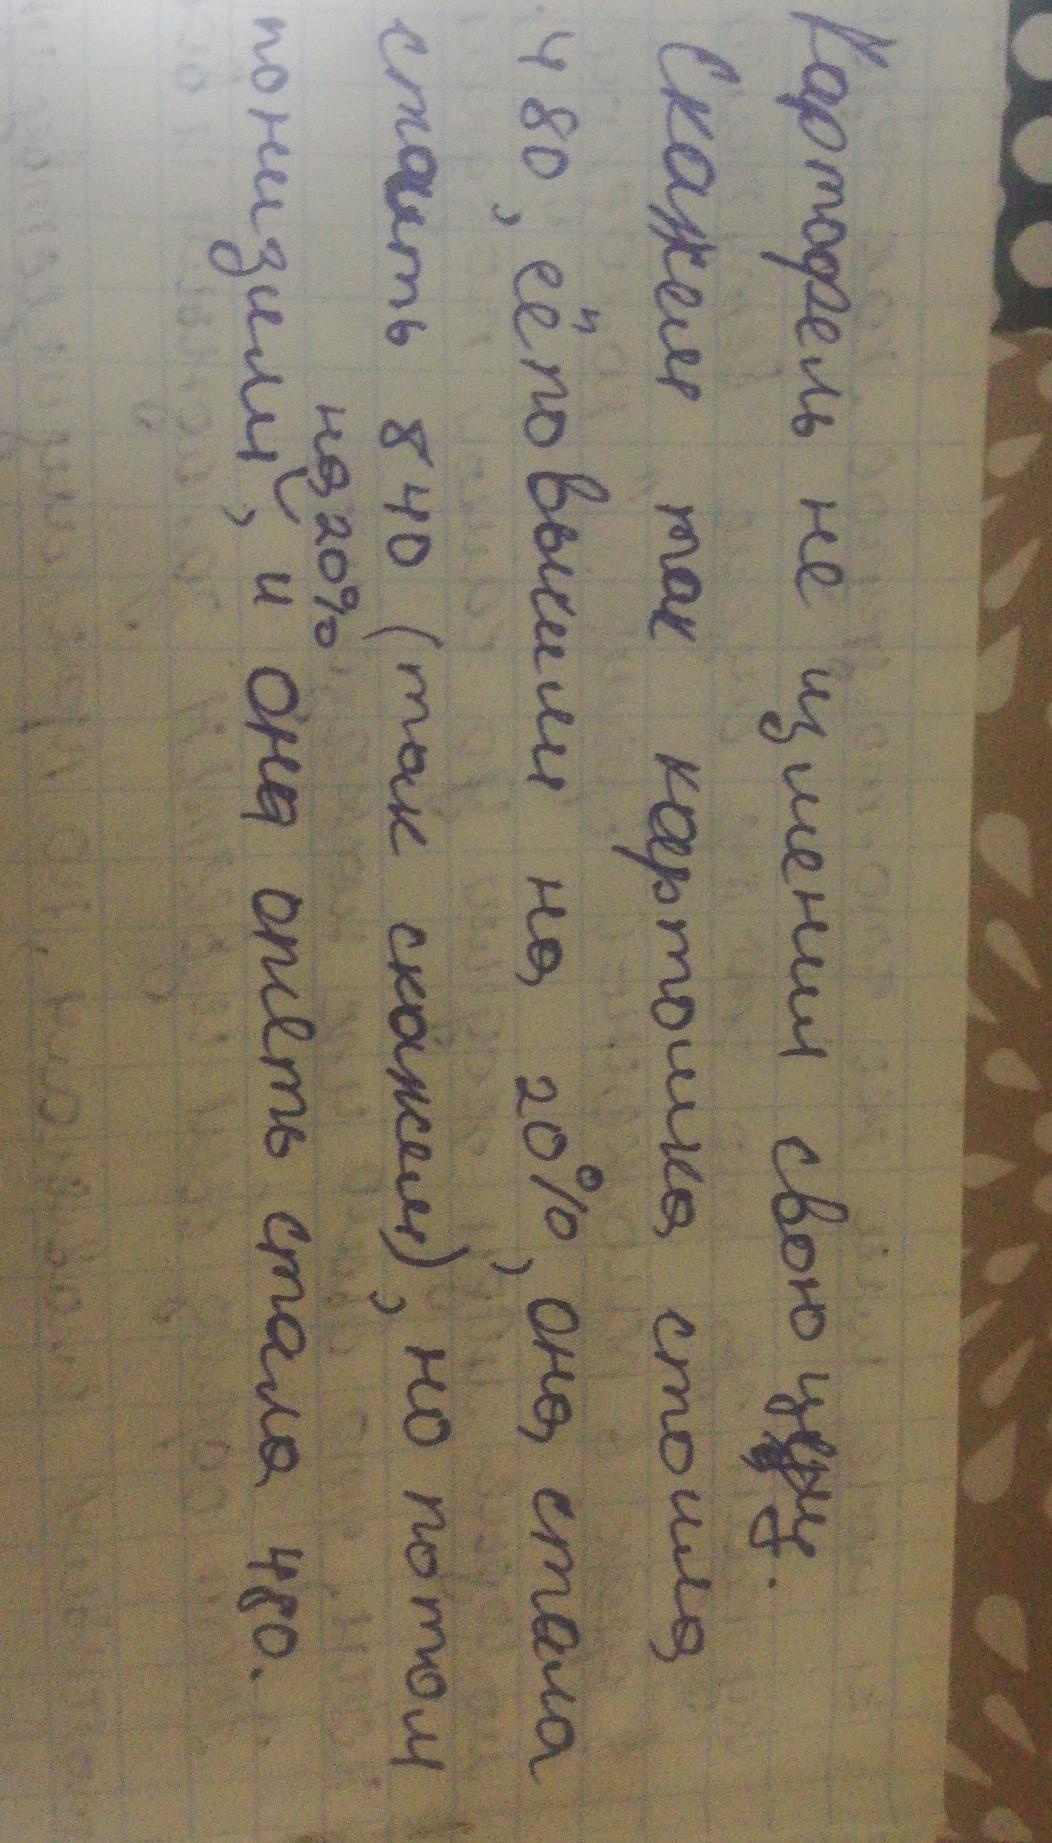 Картофель не изменил свою цену.
Скажем так картошка стоила
480, её повысили на 20%, она стала
стоить 840 (так скажем), но потом
на 20%
понизили, и она опять стала 480.